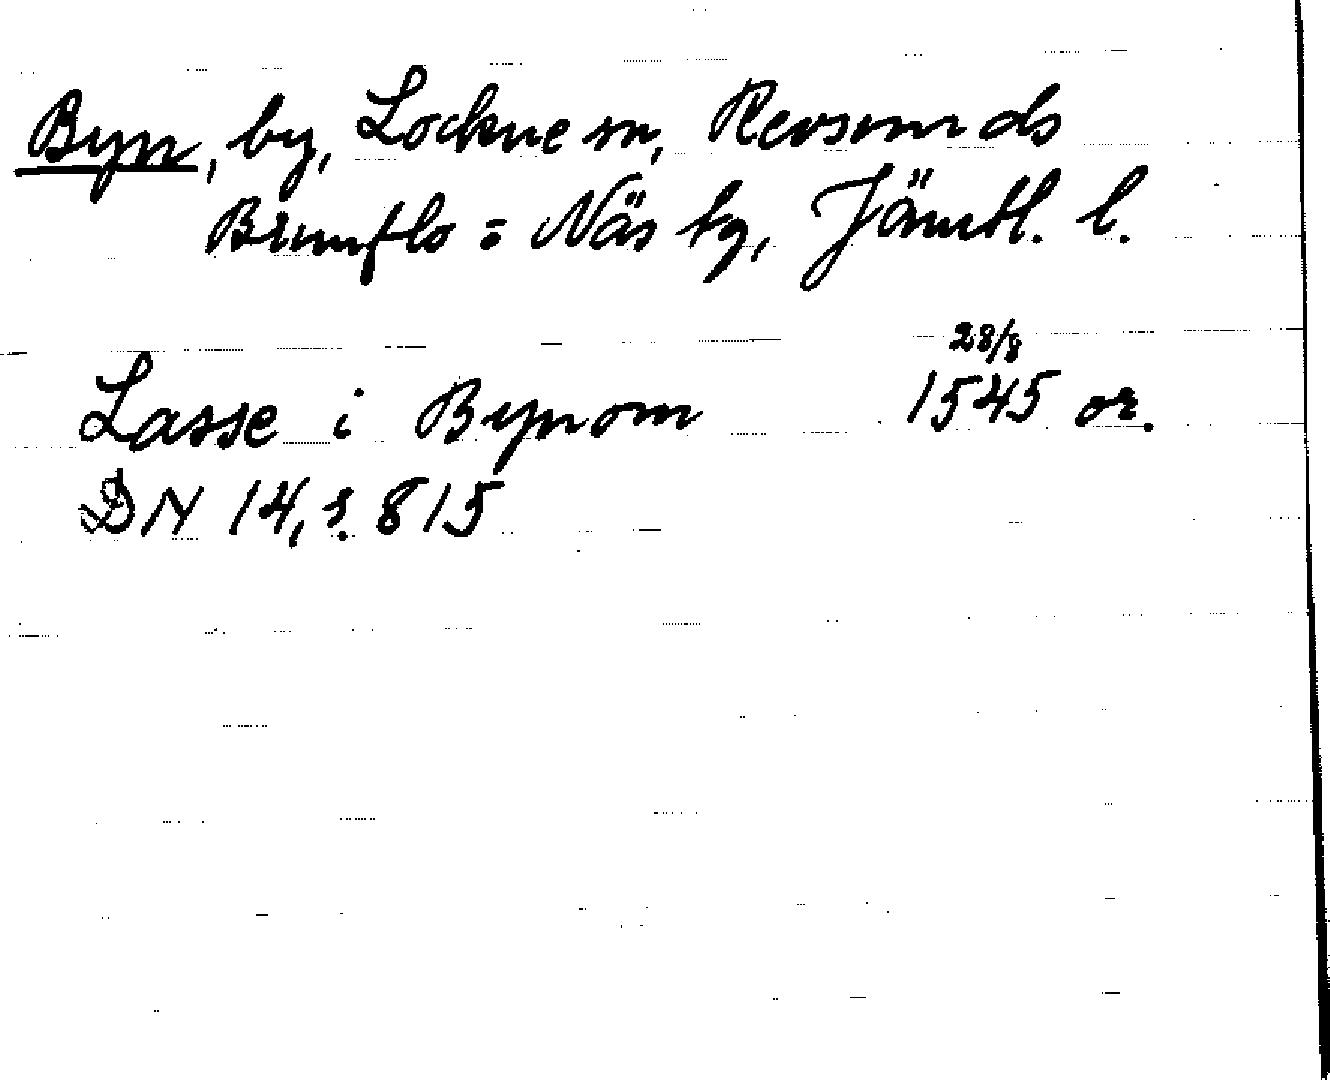 Byn, by, Lockne sn, Revsunds
Brunflo = Näs tg, Jämtl. l.
28/8
Lasse i Bynom 1545 or.
DN 14, s. 815